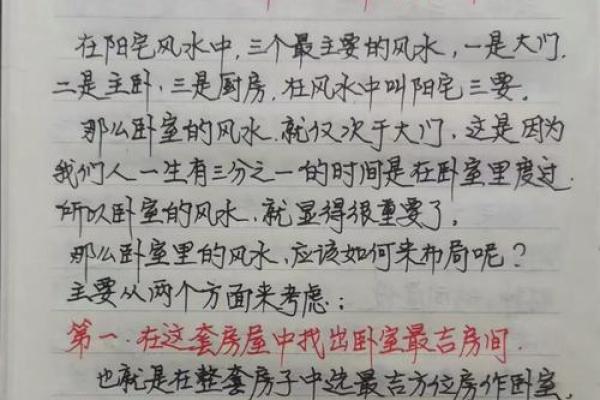 在阳宅风水中,三个最主要的风水,一是大门.
二是主卧.三是厨房.在风水中叫阳宅三要。
那么卧室的风水.就仅次于大门,这是因为
我们人一生有三分之一的时间是在卧室里度过.
所以卧室的风水.就显得很重要了。
那么卧室里的风水,应该如何来布局呢?
主要从两个方面来考虑:
第一.在这套房屋中找出卧室最吉房间.
也就是在整套房子中选最吉方位房作卧室.